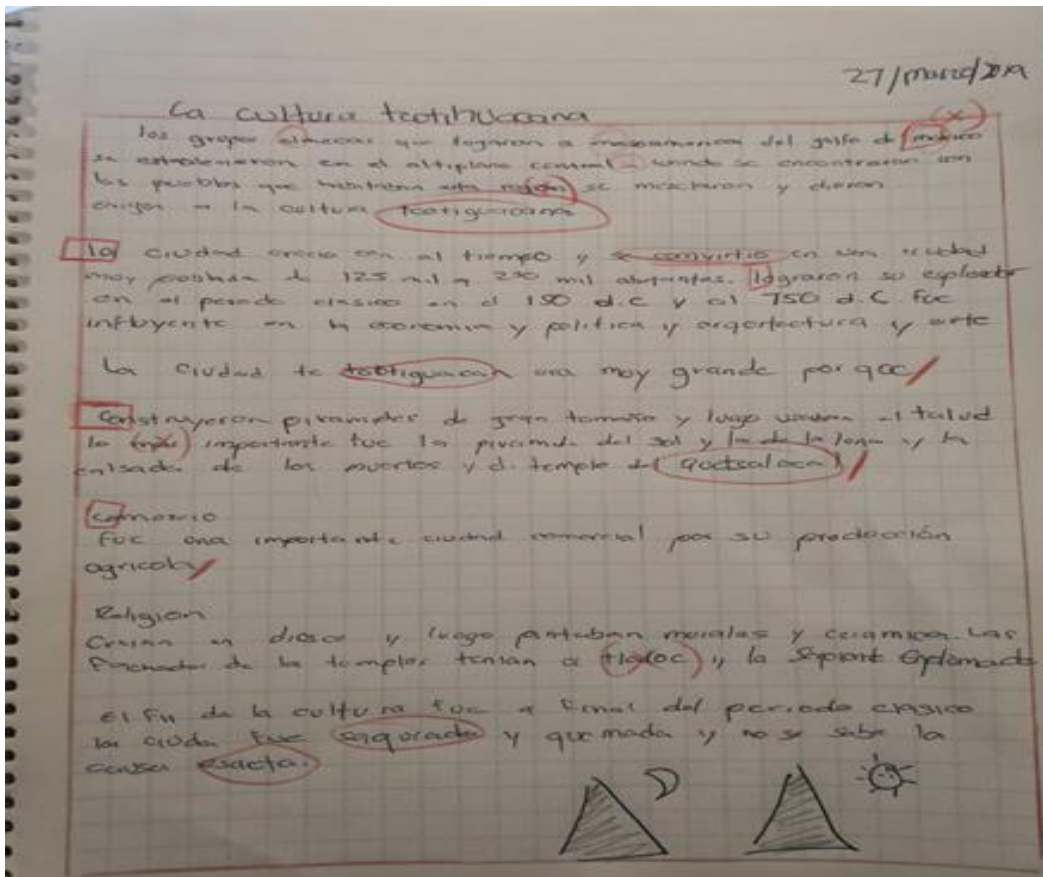 27/marzo/2019
La cultura teotihuacana
(x)
los grupos olmecas que llegaron a del golfo de mexico
se establecieron en el altiplano central donde se encontraron con
los pueblos que habitaban esta region se mezclaron y dieron
origen a la cultura teotiguacana
la ciudad crecio con el tiempo y se convirtio en una ciudad
muy poblada de 125 mil a 250 mil abitantes. lograron su esplendor
en el periodo clasico en el 150 d.c y el 750 d.C fue
influyente en la economia y politica y arqertectura y arte
La ciudad te teotiguacan era muy grande por que
construyeron piramides de gran tamaño y luego usaron el talud
lo mas importante fue la piramide del sol y la de la luna y la
calsada de los muertos y el templo del
comercio
fue una importante ciudad comercial por su producción
agricola
Religion
Creian en dioses y luego pintaban murales y ceramica. Las
fachadas de los templos tenian a tlaloc y la
el fin de la cultura fue a final del periodo clasico
la ciuda fue y quemada y no se sabe la
causa esacta.